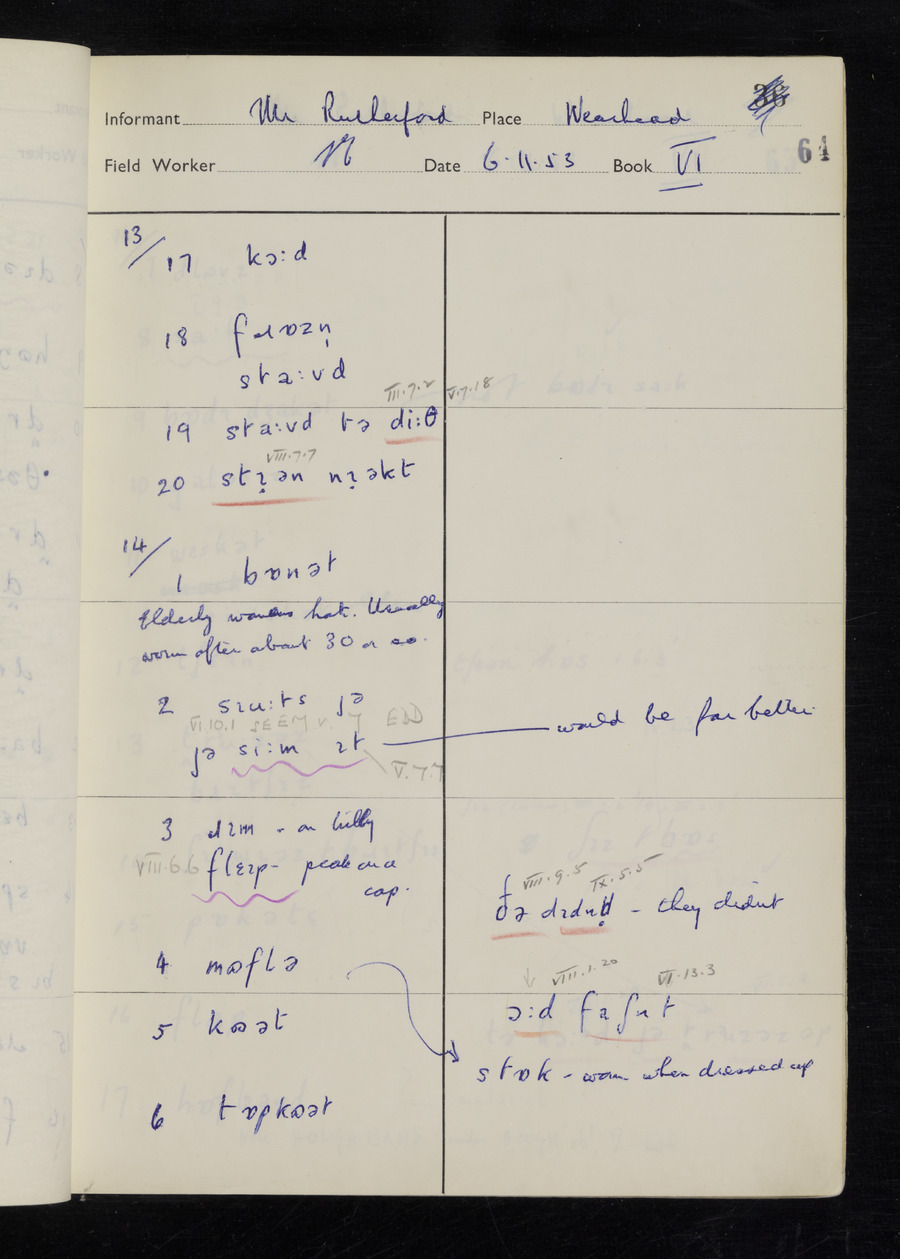 Informant Mr Rutherford Place Wearhead 36
64
Field Worker Date 6.11.53 Book VI
13/17 kɔ:d
18 fɹɒzn̩
sta:vd
III.7.2 V.7.18
19 sta:vd tə di:θ
VIII.7.7
20 strɪ̣ən nɪ̣əkt
14/1 bɒnət
Elderly womans hat. Usually
worn after about 30 or so.
2 sɪu:ts jə
VI.10.1 SEEM V. EDD
jə si:m ɪt would be far better
V.7.7
3 ɹɪm - on trilby
VIII.6.6 flɛɪp - peak on a
cap.
VIII.9.5 IX.5.5
ðə dɪdn̩t - they didn't
4 mɒflə
VIII.1.20 VI.13.3
ɔ:d faʃnt
5 kɒət
stɒk - worn when dressed up
6 tɒpkɒət